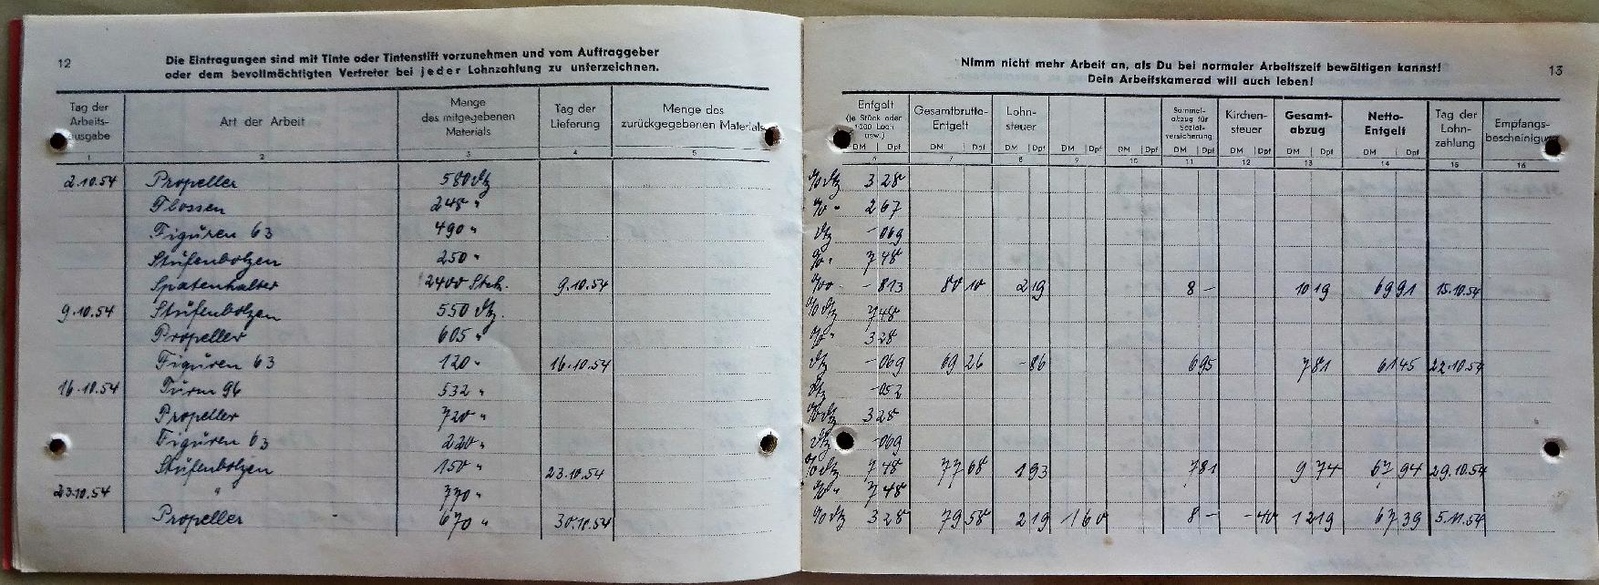 12
Die Eintragungen sind mit Tinte oder Tintenstift vorzunehmen und vom Auftraggeber
oder dem bevollmächtigten Vertreter bei jeder Lohnzahlung zu unterzeichnen.
Tag der Arbeits- ausgabe Art der Arbeit Menge des mitgegebenen Materials Tag der Lieferung Menge des zurückgegebenen Materials
1 2 3 4 5
2.10.54 Propeller 580 Dtz
Flossen 248 "
Figuren 63 490 "
Stufenbolzen 250 "
Spatenhalter 2400 Stck. 9.10.54
9.10.54 Stufenbolzen 550 Dtz.
Propeller 605 "
Figuren 63 120 " 16.10.54
16.10.54 Türm 96 532 "
Propeller 720 "
Figuren 63 220 "
Stufenbolzen 150 " 23.10.54
23.10.54 " 770 "
Propeller 670 " 30.10.54
Nimm nicht mehr Arbeit an, als Du bei normaler Arbeitszeit bewältigen kannst!
Dein Arbeitskamerad will auch leben!
13
Entgelt (je Stück oder 1000 Loch usw.) Gesamtbrutto- Entgelt Lohn- steuer Sammel- abzug für Sozial- versicherung Kirchen- steuer Gesamt- abzug Netto- Entgelt Tag der Lohn- zahlung Empfangs- bescheinigung
DM Dpf DM Dpf DM Dpf DM Dpf DM Dpf DM Dpf DM Dpf DM Dpf DM Dpf
6 7 8 9 10 11 12 13 14 15 16
% Dtz 3 28
% " 2 67
Dtz - 069
% " 7 48
%00 - 813 80 10 2 19 8 - 10 19 69 91 15.10.54
% Dtz 7 48
% " 3 28
Dtz - 069 69 26 - 86 6 95 7 81 61 45 22.10.54
Dtz - 052
% Dtz 3 28
Dtz - 069
% Dtz 7 48 77 68 1 93 7 81 9 74 67 94 29.10.54
% " 7 48
% Dtz 3 28 79 58 2 19 1 60 8 - - 40 12 19 67 39 5.11.54